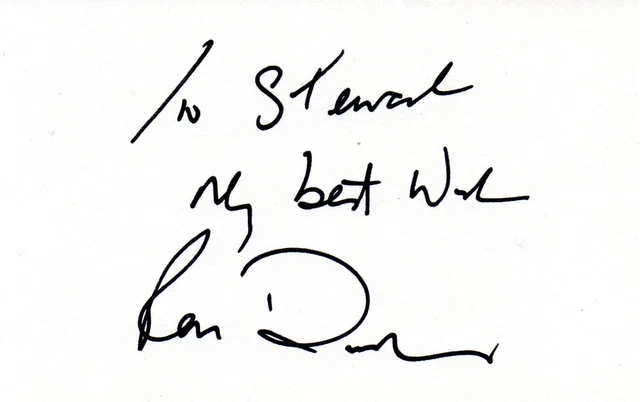 To Stewart
My best Wish
Ron